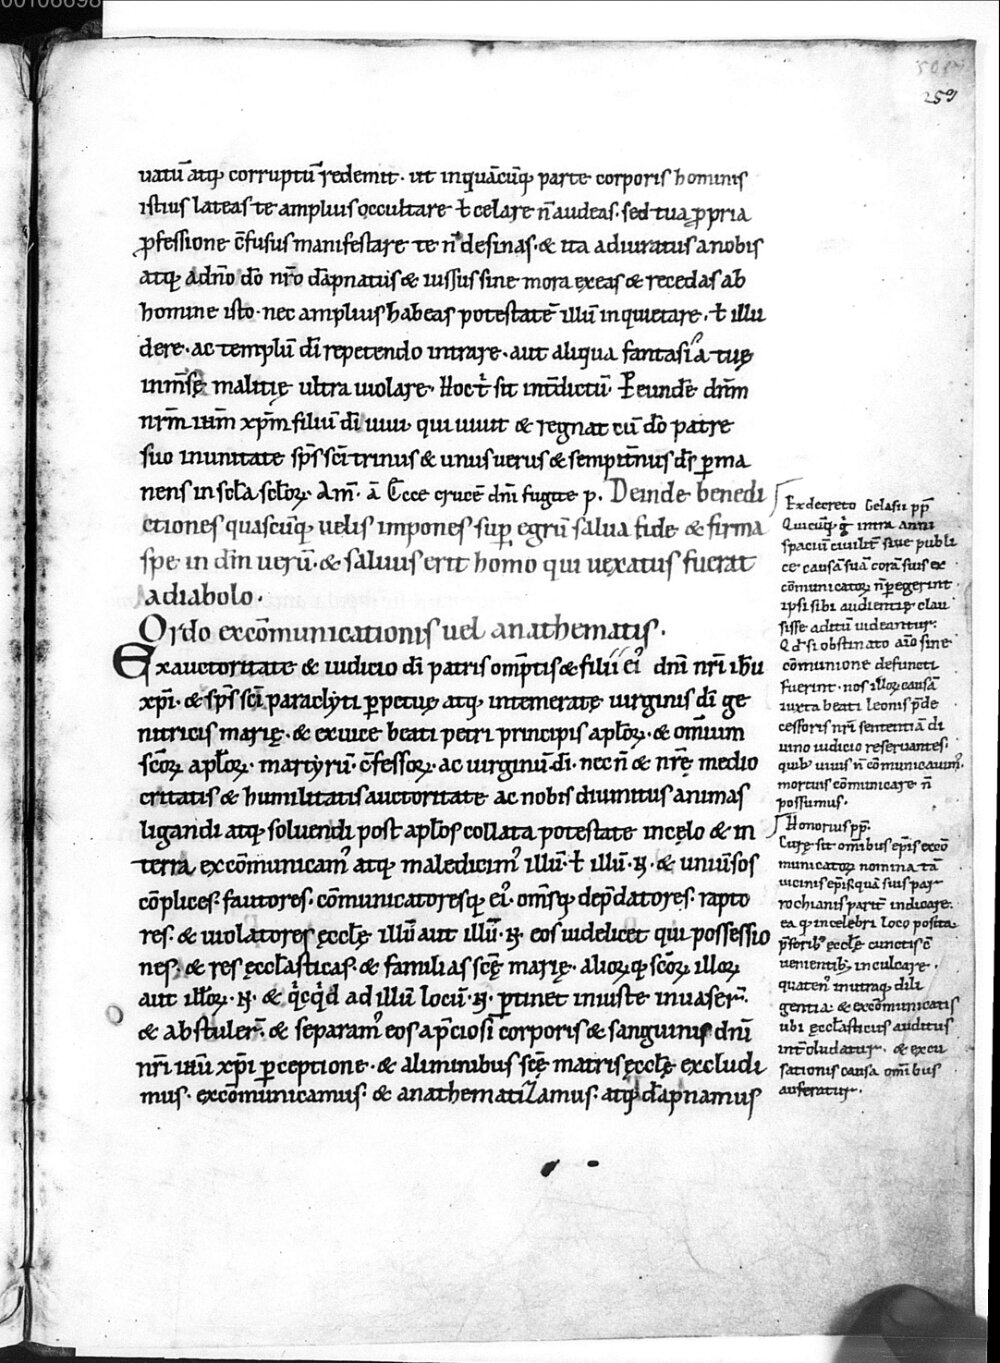 00106698
259
uatū atq; corruptū redemit. ut inquācūq; parte corporis hominis
istius lateas te amplius occultare ł celare n̄ audeas. sed tua ꝓpria
ꝓfessione c̄fusus manifestare te n̄ desinas. & ita adiuratus a nobis
atq; a dn̄o dō nr̄o dāpnatus & iussus sine mora exeas & recedas ab
homine isto. nec amplius habeas potestatē illū inquietare. ł illu
dere. ac templū dī repetendo intrare. aut aliqua fantasia tuę
inm̄sę malitię ultra uiolare. Hoc t̄ sit int̄dictū. Ꝑ eundē dn̄m
nr̄m ihm̄ xp̄m filiū dī uiui. qui uiuit & regnat cū dō patre
suo in unitate sp̄s sc̄i trinus & unus uerus & sempit̄nus ds̄ ꝑma
nens in scl̄a scl̄oꝝ. Am̄. a Ecce crucē dn̄i fugite p. Deinde benedi
ctiones quascūq; uelis impones suꝑ egrū salua fide & firma
spe in dm̄ uerū. & saluus erit homo qui uexatus fuerat
a diabolo.
Ordo excōmunicationis uel anathematis.
Ex auctoritate & iudicio dī patris omp̄tis & filii ei᷒ dn̄i nr̄i ihu̅
xp̄i. & sp̄s sc̄i paraclyti ꝑpetuę atq; intemeratę uirginis dī ge
nitricis marię. & ex uice beati petri principis apl̄oꝝ. & om̄ium
sc̄oꝝ apl̄oꝝ. martyrū. c̄fessoꝝ. ac uirginū dī. necn̄ & nr̄ę medio
critatis & humilitatis auctoritate ac nobis diuinitus animas
ligandi atq; soluendi post apl̄os collata potestate in cęlo & in
terra, excōmunicam᷒ atq; maledicim᷒ illū. ł illū. N. & uniūsos
cōplices. fautores. cōmunicatoresq; ei᷒. om̄sq; dep̄datores. rapto
res. & uiolatores ęccl̄ę illū aut illū. N. eos uidelicet qui possessio
nes. & res ęccl̄asticas. & familias sc̄ę marię. alioꝝq; sc̄oꝝ illoꝝ
aut illoꝝ. N. & q̇cq̇d ad illū locū. N. ꝑtinet iniuste inuaser̄.
& abstuler̄. & separam᷒ eos a p̄ciosi corporis & sanguinis dn̄i
nr̄i ihu̅ xp̄i ꝑceptione. & a liminibus sc̄ę matris ęccl̄ę excludi
mus. excōmunicamus. & anathematizamus. atq; dāpnamus
Ex decreto Gelasii pp̄
Quicūq; intra anni
spaciū ciuilit̄ siue publi
ce causā suā corā suis ex
cōmunicatoꝝ n̄ ꝑegerint
ipsi sibi audientię clau
sisse aditū uideantur.
Qd̄ si obstinato aīo sine
cōmunione defuncti
fuerint. nos illoꝝ causā
iuxta beati leonis p̄de
cessoris nr̄i sententiā di
uino iudicio reseruantes.
quib; uiuis n̄ cōmunicauim᷒.
mortuis cōmunicare n̄
possumus.
Honorius pp̄.
Curę sit omibus ep̄is excō
municatoꝝ nomina tā
uicinis ep̄is quā suis par
rochianis parit̄ indicare.
ea q; in celebri loco posita
p̄ forib᷒ ęccl̄ę cunctis c̄
uenientib; inculcare.
quaten᷒ in utraq; dili
gentia. & excōmunicatis
ubi ęccl̄asticus auditus
int̄cludatur. & excu
sationis causa om̄ibus
auferatur.